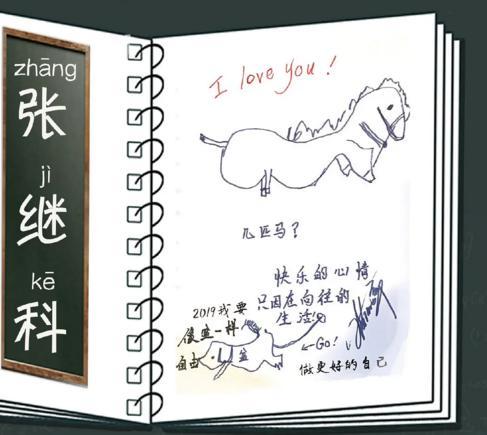 zhāng
张
jì
继
kē
科
I love you!
几匹马?
快乐的心情
只因在向往的
生活
2019我要
像蓝一样
自由
蓝
←Go!
做更好的自己